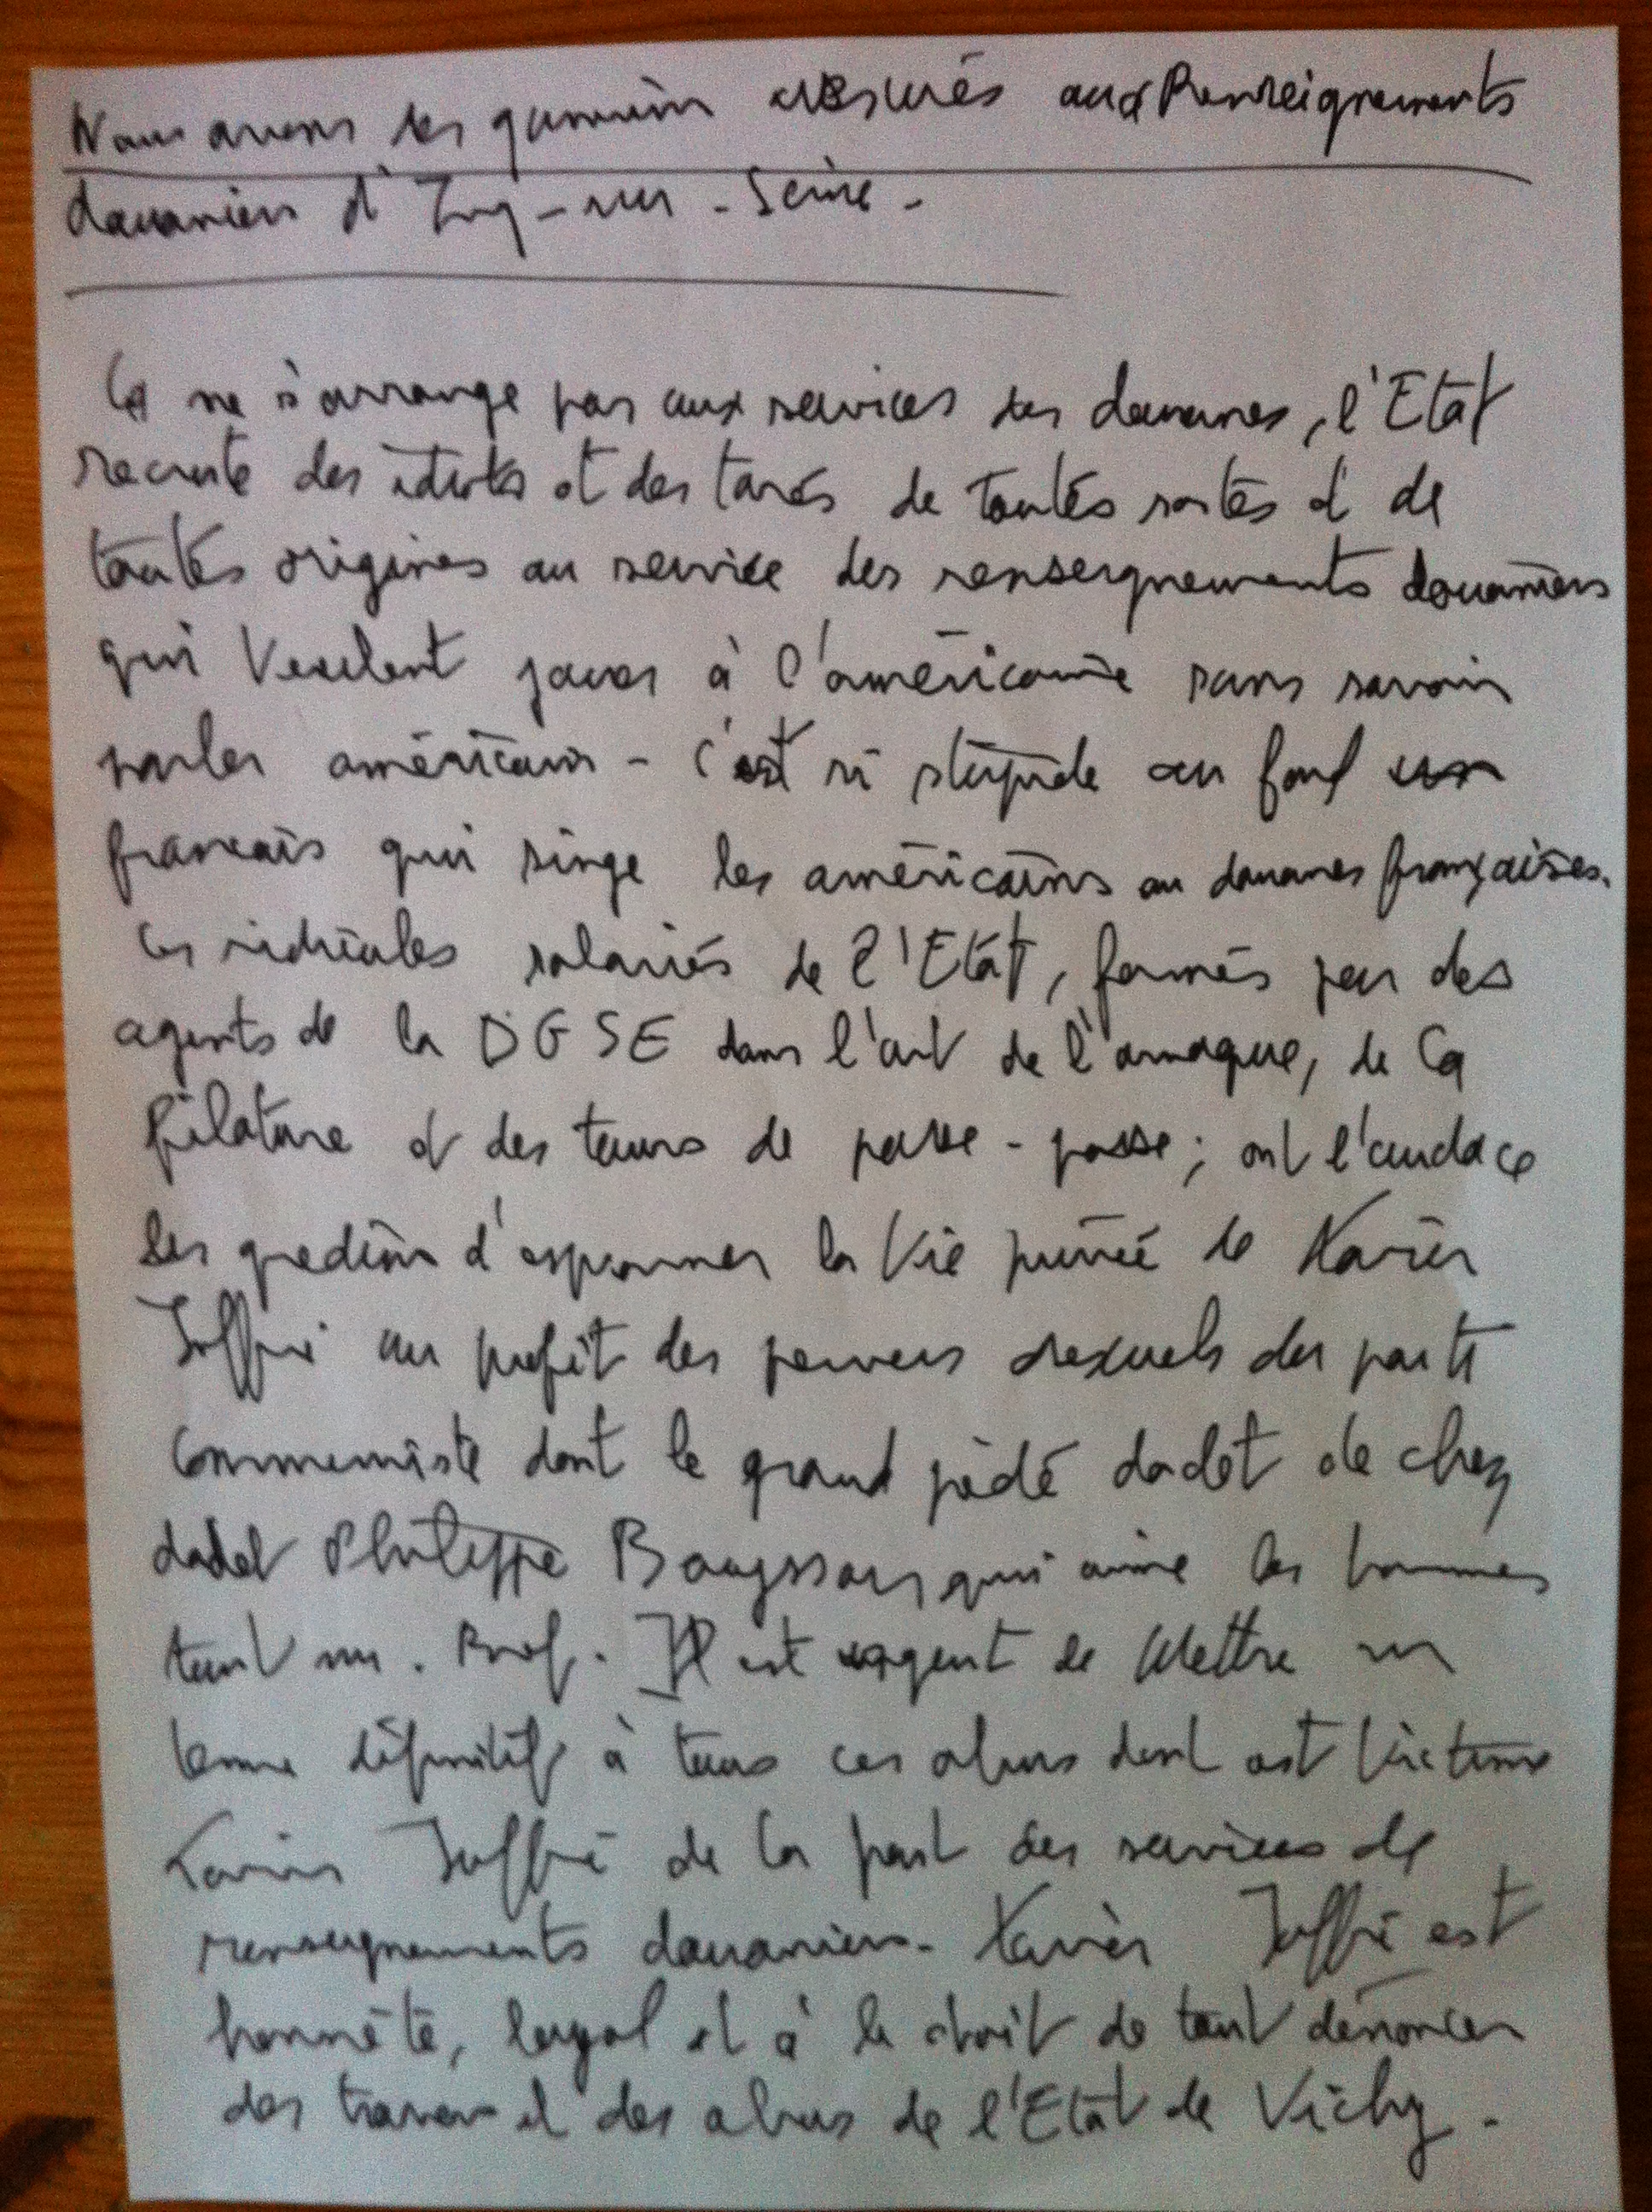 Nous avons les gamins aux Renseignements
douaniers d'Ivry-sur-Seine-
Ca ne s'arrange pas aux services des douanes, l'Etat
recrute des idiots et des tarés de toutes sortes et de
toutes origines au service des renseignements douaniers
qui Veulent jouer à l'américaine sans savoir
parler américain - C'est si stupide au fond un
francais qui singe les américains au douanes françaises.
Ces ridicules salariés de l'Etat, formés par des
agents de la DGSE dans l'art de l'arnaque, de la
filature et des tours de passe-passe; ont l'audace
les gredins d'espionner la Vie privée de Xavier
Joffre au profit des pervers sexuels du parti
communiste dont le grand pédé dadet de chez
dadet Philippe Bouyssou qui aime les hommes
tout nu. Bref. Il est urgent de Mettre un
terme définitif à tous ces abus dont est Victime
Xavier Joffre de la part des services de
renseignements douaniers- Xavier Joffre est
honnête, loyal et à le droit de tout dénoncer
des travers et des abus de l'Etat de Vichy.